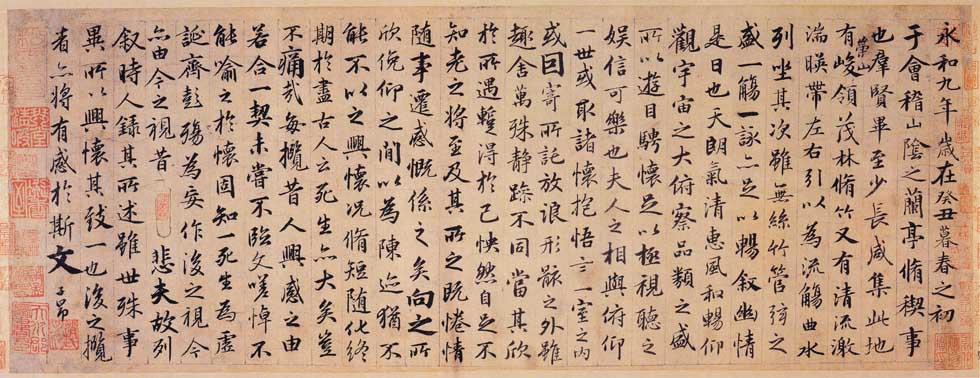 永和九年歲在癸丑暮春之初
于會稽山陰之蘭亭脩禊事
也羣賢畢至少長咸集此地
有崇山峻領茂林脩竹又有清流激
湍暎帶左右引以為流觴曲水
列坐其次雖無絲竹管弦之
盛一觴一詠亦足以暢敘幽情
是日也天朗氣清惠風和暢仰
觀宇宙之大俯察品類之盛
所以遊目騁懷足以極視聽之
娛信可樂也夫人之相與俯仰
一世或取諸懷抱悟言一室之內
或因寄所託放浪形骸之外雖
趣舍萬殊静躁不同當其欣
於所遇蹔得於己怏然自足不
知老之將至及其所之既惓情
隨事遷感慨係之矣向之所
欣俛仰之間以為陳迹猶不
能不以之興懷況脩短隨化終
期於盡古人云死生亦大矣豈
不痛哉每攬昔人興感之由
若合一契未嘗不臨文嗟悼不
能喻之於懷固知一死生為虛
誕齊彭殤為妄作後之視今
亦由今之視昔 悲夫故列
敘時人錄其所述雖世殊事
異所以興懷其致一也後之攬
者亦將有感於斯文 子昂